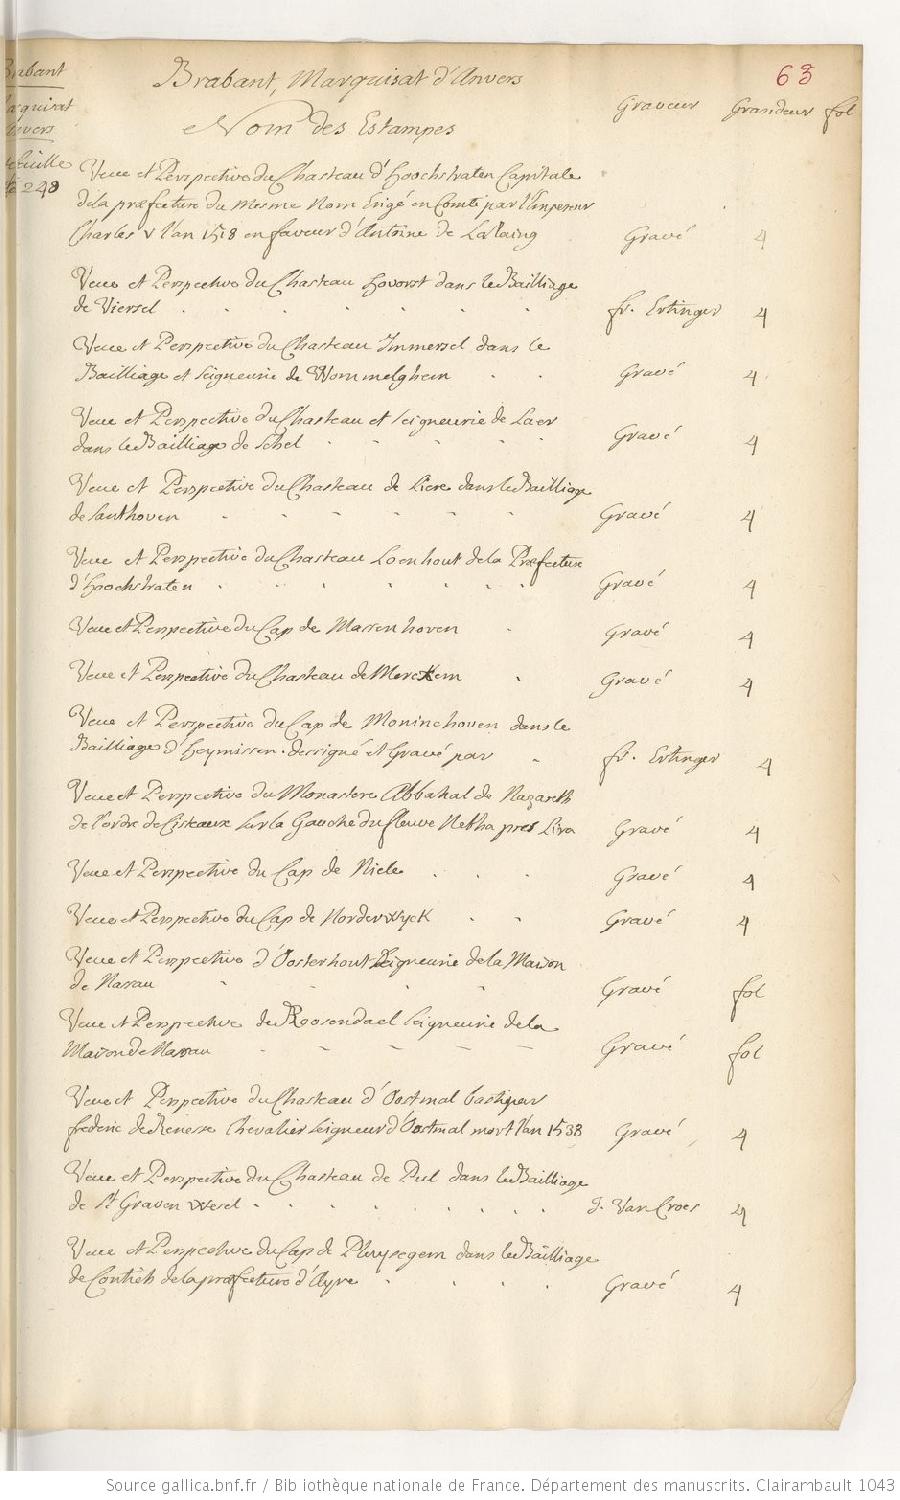 Brabant
Marquisat
Anvers
feuille
248
63
Brabant, Marquisat d'Anvers
Nom des Estampes
Graveur Grandeur fol
Veue et Perspective du Chasteau d'Hoochstraten Capitale
de la præfecture du Mesme Nom Erigé en Comté par l'Empereur
Charles V l'an 1518 en faveur d'Antoine de Lalaing Gravé 4
Veue et Perspective du Chasteau Hovorst dans le Bailliage
de Viersel fr. Ertinger 4
Veue et Perspective du Chasteau Immersel dans le
Bailliage et seigneurie de Wommelghem Gravé 4
Veue et Perspective du Chasteau et seigneurie de Laer
dans le Bailliage de Schel Gravé 4
Veue et Perspective du Chasteau de Liere dans le Bailliage
de Santhoven Gravé 4
Veue et Perspective du Chasteau Loenhout de la Præfecture
d'Hoochstraten Gravé 4
Veue et Perspective du Cap de Massenhoven Gravé 4
Veue et Perspective du Chasteau de Merckem Gravé 4
Veue et Perspective du Cap de Moninchoven dans le
Bailliage d'Heymissen. dessigné et Gravé par fr. Ertinger 4
Veue et Perspective du Monastere Abbatial de Nazareth
de l'ordre de Cisteaux sur la Gauche du fleuve Netha pres Lira Gravé 4
Veue et Perspective du Cap de Niele Gravé 4
Veue et Perspective du Cap de Norderwyck Gravé 4
Veue et Perspective d'Oosterhout Seigneurie de la Maison
de Nassau Gravé fol
Veue et Perspective de Roosendael seigneurie de la
Maison de Nassau Gravé fol
Veue et Perspective du Chasteau d'Oostmal basti par
frederic de Renesse Chevalier seigneur d'Oostmal mort l'an 1538 Gravé 4
Veue et Perspective du Chasteau de Pul dans le Bailliage
de St Graven Wesel J. Van Croes 4
Veue et Perspective du Cap de Pluysegem dans le Bailliage
de Contich de la præfecture d'Ayre Gravé 4
Source gallica.bnf.fr / Bibliothèque nationale de France. Département des manuscrits. Clairambault 1043